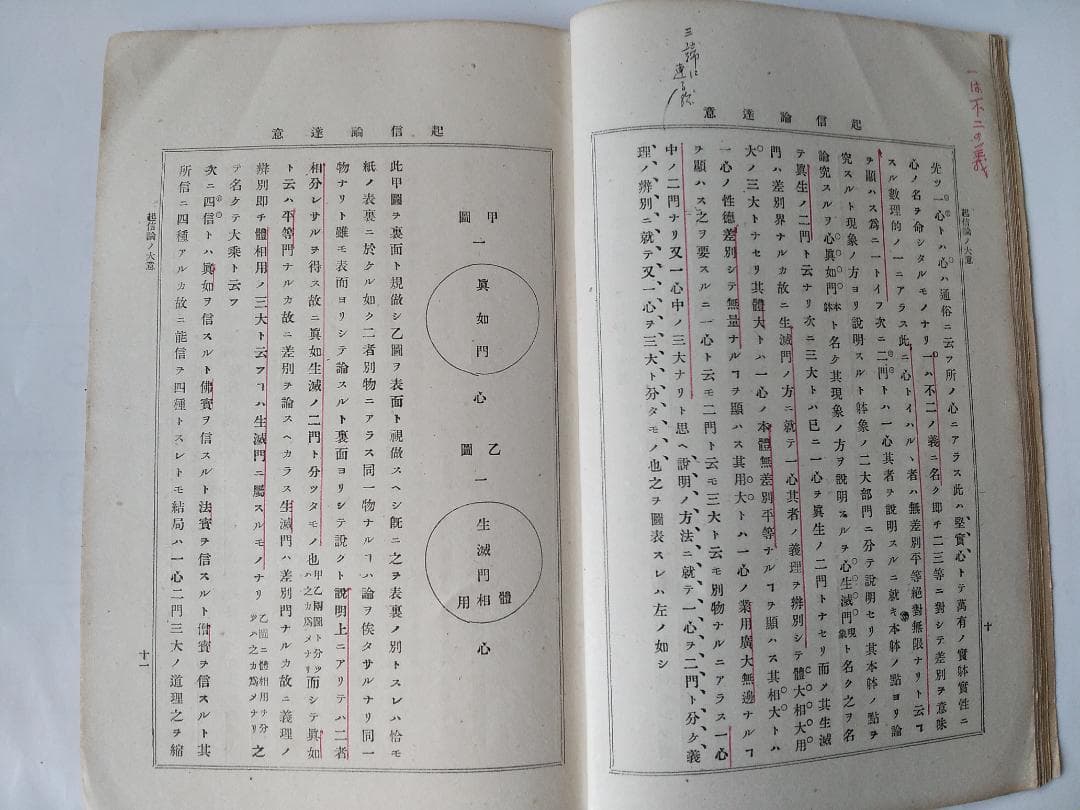 一は不二の義
三諦に
起信論達意
起信論ノ大意
十
先ツ一心トハ心ハ通俗ニ云フ所ノ心ニアラス此ハ堅實心トテ萬有ノ實躰實性ニ
心ノ名ヲ命シタルモノナリ一ハ不二ノ義ニ名ク即チ二三等ニ對シテ差別ヲ意味
スル數理的ノ一ニアラス此ニ心トイハルヽ者ハ無差別平等絕對無限ナリト云フヿ
ヲ顯ハス爲ニ一トイフ次ニ二門トハ一心其者ヲ說明スルニ就キ本躰ノ點ヨリ論
究スルト現象ノ方ヨリ說明スルト躰象ノ二大部門ニ分テ說明セリ其本躰ノ點ヲ
論究スルヲ心眞如門本躰ト名ク其現象ノ方ヲ說明スルヲ心生滅門現象ト名ク之ヲ名
テ眞生ノ二門ト云ナリ次ニ三大トハ已ニ一心ヲ眞生ノ二門トナセリ而メ其生滅
門ハ差別界ナルカ故ニ生滅門ノ方ニ就テ一心其者ノ義理ヲ辨別シテ體大相大用
大ノ三大トナセリ其體大トハ一心ノ本體無差別平等ナルヿヲ顯ハス其相大トハ
一心ノ性德差別シテ無量ナルヿヲ顯ハス其用大トハ一心ノ業用廣大無邊ナルヿ
ヲ顯ハス之ヲ要スルニ一心ト云モ二門ト云モ三大ト云モ別物ナルニアラス一心
中ノ二門ナリ又一心中ノ三大ナリト思ヘ說明ノ方法ニ就テ一心ヲ二門ト分ケ義
理ノ辨別ニ就テ又一心ヲ三大ト分タモノ也之ヲ圖表スレハ左ノ如シ
起信論達意
甲圖
一眞如門心
乙圖
一生滅門體相用心
此甲圖ヲ裏面ト規做シ乙圖ヲ表面ト視做スヘシ旣ニ之ヲ表裏ノ別トスレハ恰モ
紙ノ表裏ニ於ケル如ク二者別物ニアラス同一物ナルヿハ論ヲ俟タサルナリ同一
物ナリト雖モ表面ヨリシテ論スルト裏面ヨリシテ說クト說明上ニアリテハ二者
相分レサルヲ得ス故ニ眞如生滅ノ二門ト分ツタモノ也甲乙兩圖ト分ツハ之カ爲メナリ而シテ眞如
ト云ハ平等門ナルカ故ニ差別ヲ論スヘカラス生滅門ハ差別門ナルカ故ニ義理ノ
辨別即チ體相用ノ三大ト云フヿハ生滅門ニ屬スルモノナリ乙圖ニ體相用ヲ分ツハ之カ爲メナリ之
テ名クテ大乘ト云フ
次ニ四信トハ眞如ヲ信スルト佛寶ヲ信スルト法寶ヲ信スルト僧寶ヲ信スルト其
所信ニ四種アルカ故ニ能信ヲ四種トスレトモ結局ハ一心二門三大ノ道理之ヲ縮
起信論ノ大意
十一